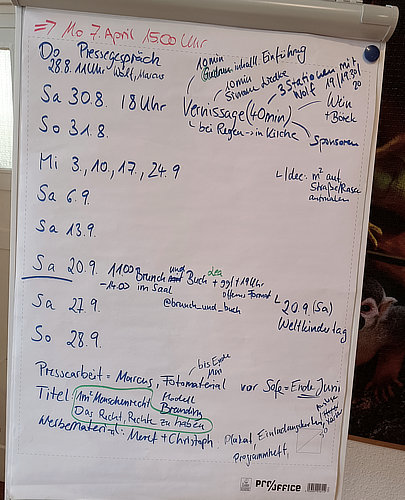 => Mo 7. April 15:00 Uhr
Do Pressegespräch
28.8. 11 Uhr Wolf, Marcus
10 min
Gudrun inhaltl. Einführung
10 min
3 Stationen mit Wolf
19/19:30/20
Sa 30.8. 18 Uhr
Vernissage (40 min)
Wein
+ Börek
└ bei Regen -> in Kirche
Sponsoren
So 31.8.
Mi 3., 10., 17., 24.9
└ Idee: m² auf
Straße/Rasen
ausmalen
Sa 6.9.
Sa 13.9.
Sa 20.9. 11:00 Brunch und Buch
-14:00 im Saal
+ ggf. + 19 Uhr
offenes Format
@brunch_und_buch
└ 20.9. (Sa)
Weltkindertag
Sa 27.9.
So 28.9.
bis Ende
Juni
Pressearbeit = Marcus, Fotomaterial vor SoFe = Ende Juni
Titel: 1m² Menschenrecht
Modell
Branding
Das Recht, Rechte zu haben
Werbematerial: Meret + Christoph
Plakat Einladungskarten
Programmheft,
PRO/OFFICE